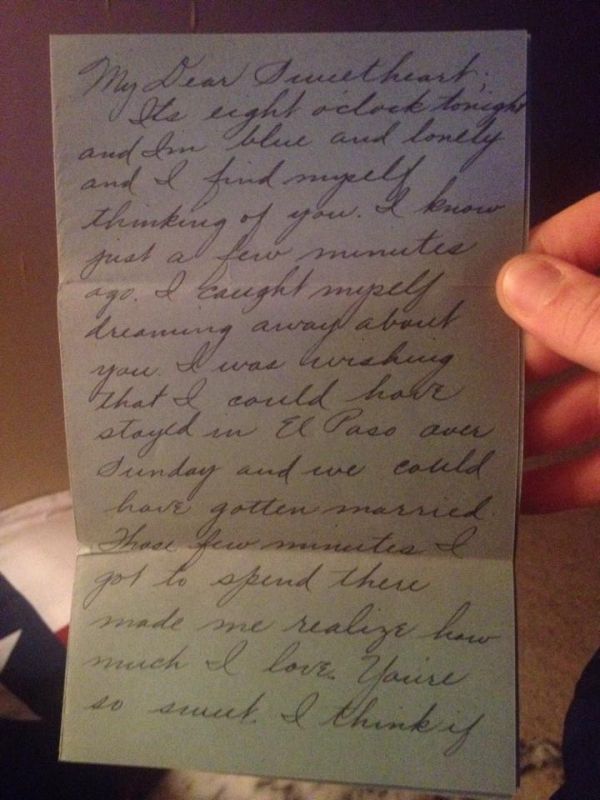 My Dear Sweetheart;
Its eight oclock tonight
and Im blue and lonely
and I find myself
thinking of you. I know
just a few minutes
ago. I caught myself
dreaming away about
you. I was wishing
that I could have
stayed in El Paso over
Sunday and we could
have gotten married.
Those few minutes I
got to spend there
made me realize how
much I love. Youre
so sweet. I think if